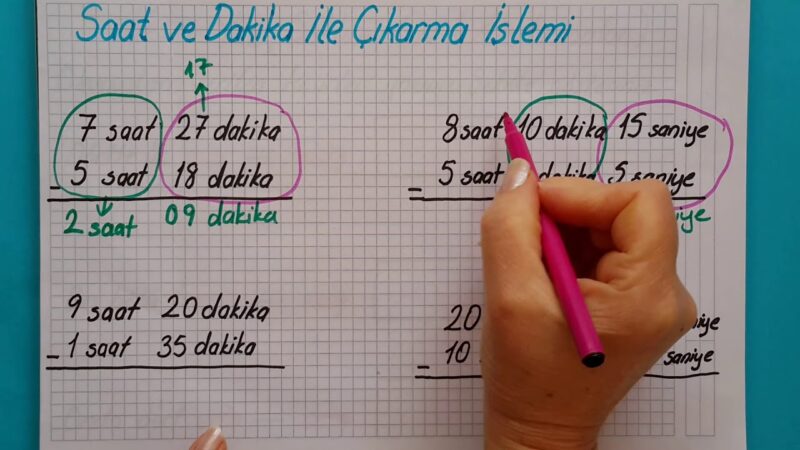 Saat ve Dakika İle Çıkarma İşlemi
17
7 saat 27 dakika
- 5 saat 18 dakika
2 saat 09 dakika
8 saat 10 dakika 15 saniye
- 5 saat dakika 5 saniye
9 saat 20 dakika
- 1 saat 35 dakika
20
- 10 saniye